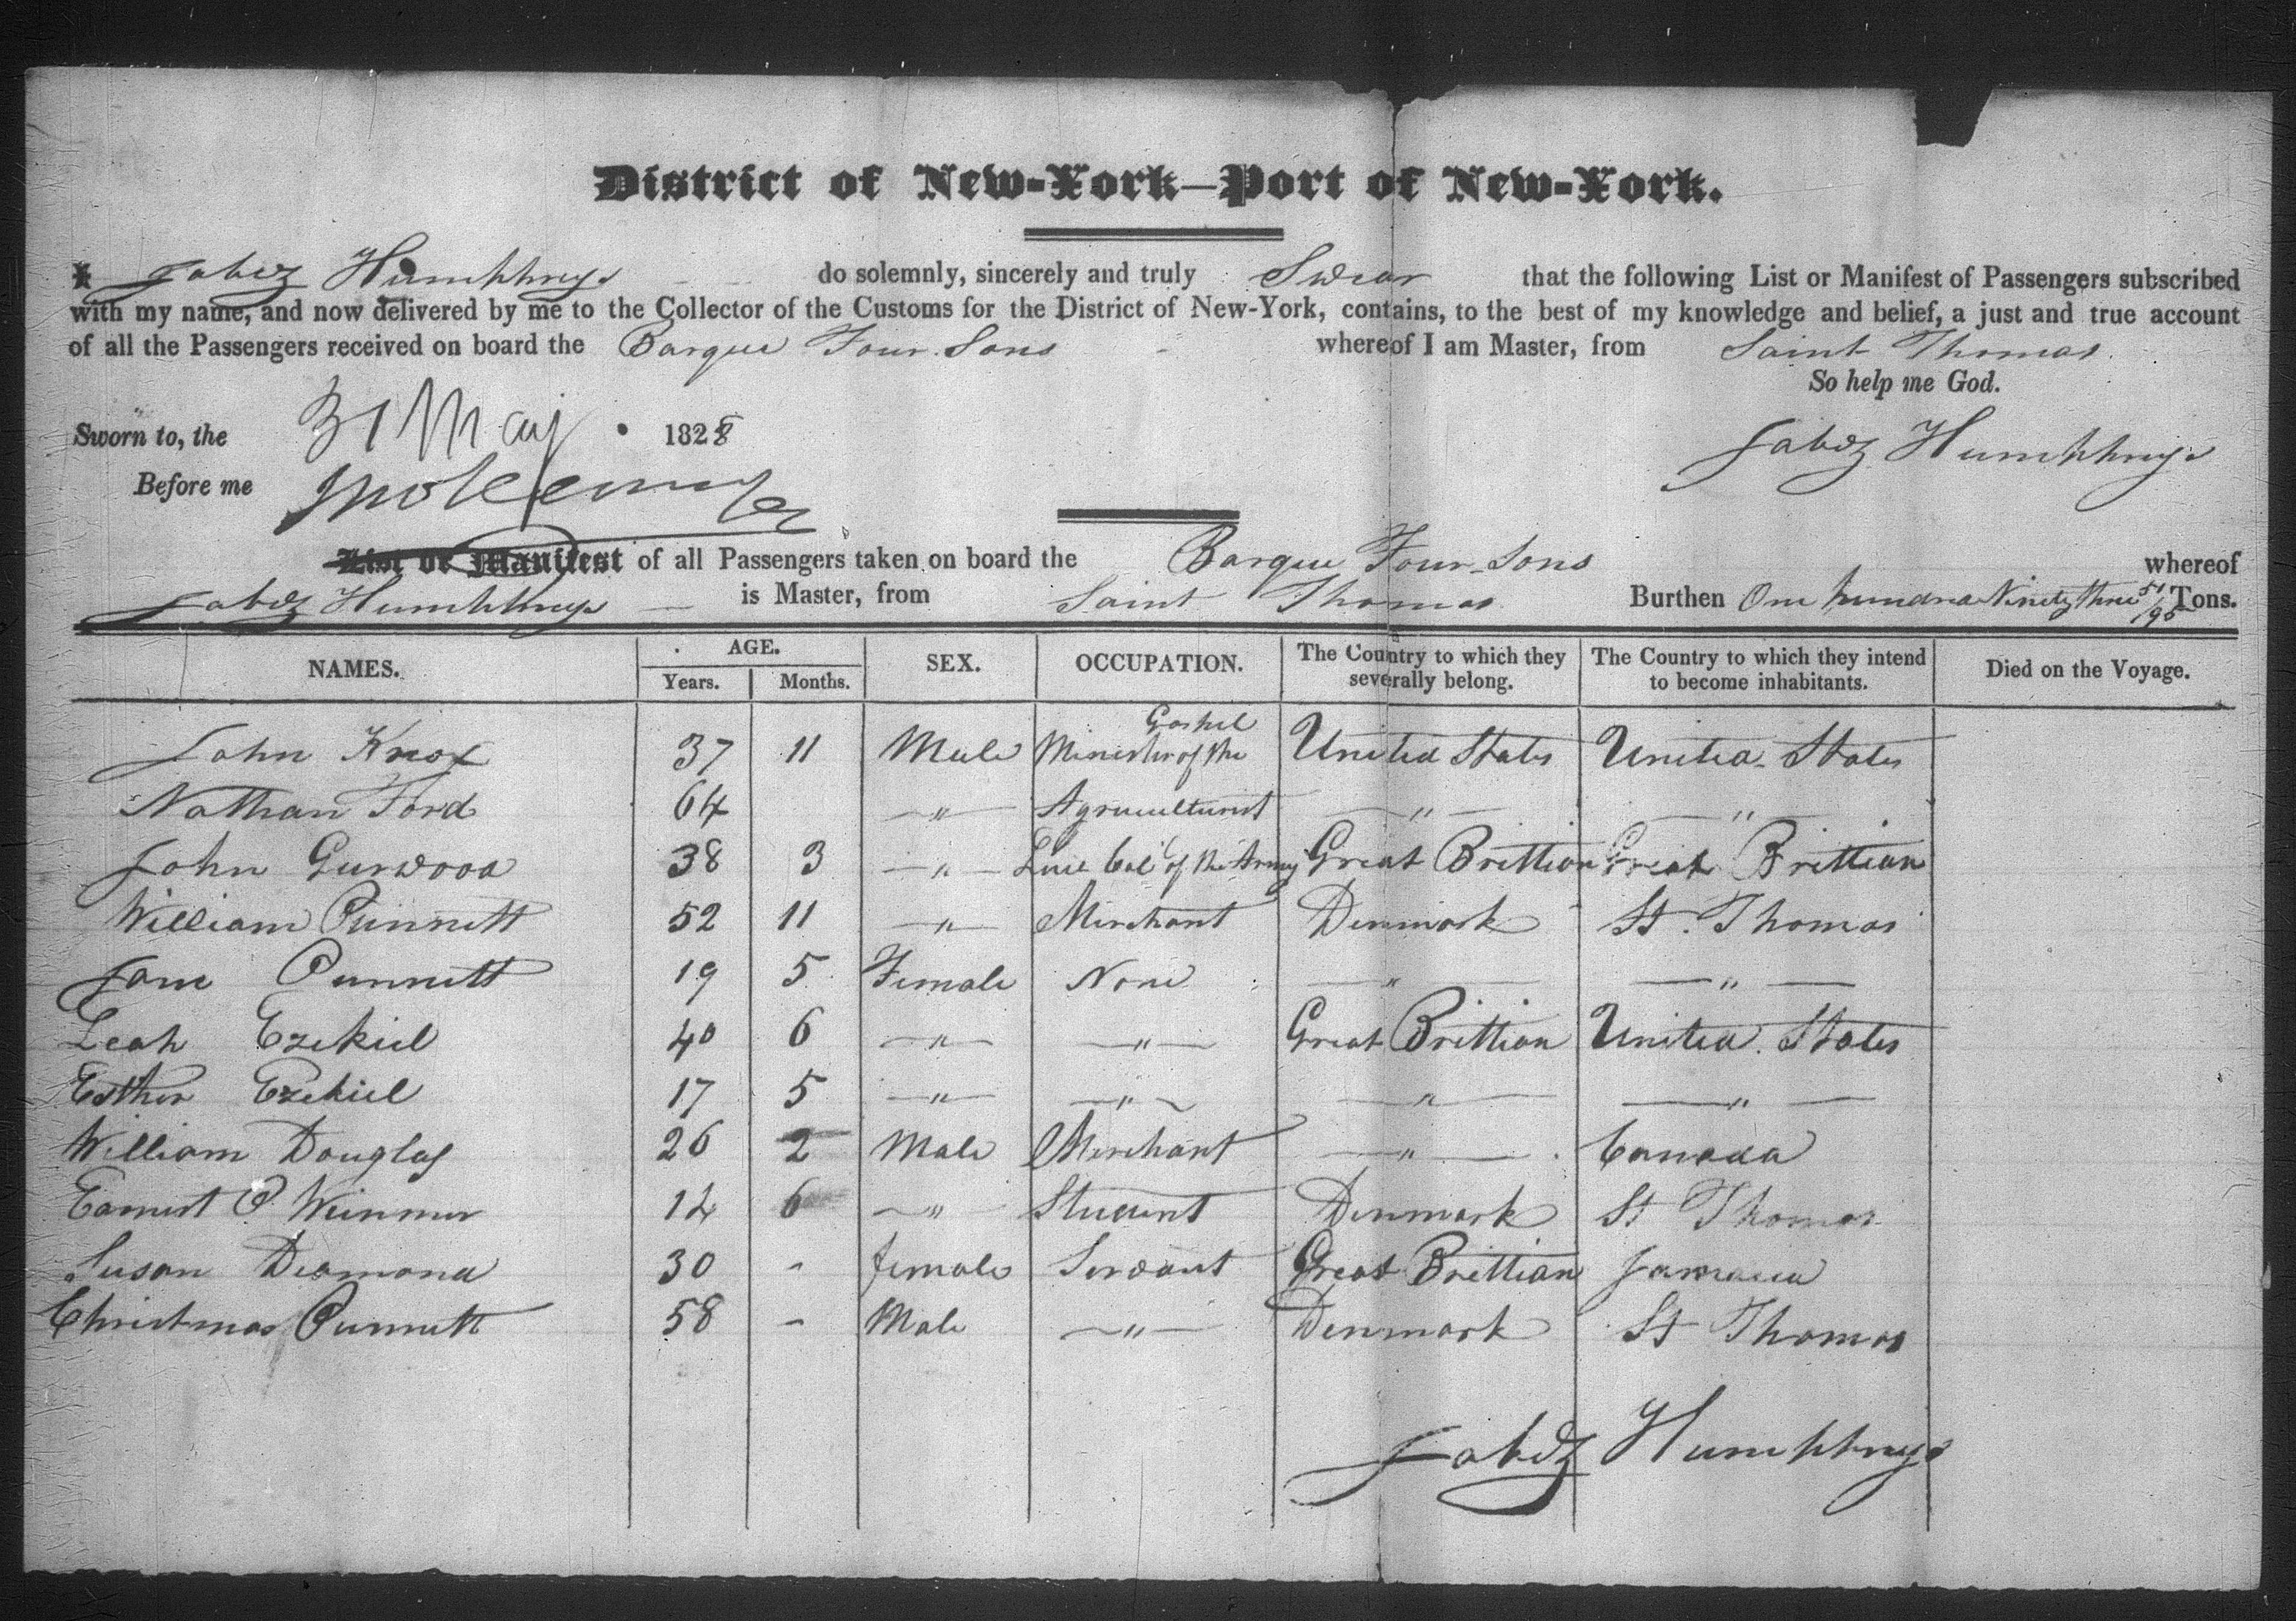 District of New-York—Port of New-York.
I Jabez Humphreys do solemnly, sincerely and truly Swear that the following List or Manifest of Passengers subscribed
with my name, and now delivered by me to the Collector of the Customs for the District of New-York, contains, to the best of my knowledge and belief, a just and true account
of all the Passengers received on board the Barque Four Sons whereof I am Master, from Saint Thomas.
So help me God.
Sworn to, the 31 May 1828
Jabez Humphreys
Before me
List or Manifest of all Passengers taken on board the Barque Four Sons whereof
Jabez Humphreys is Master, from Saint Thomas Burthen One hundred Ninety three 51/95 Tons.
NAMES. AGE. Years. Months. SEX. OCCUPATION. The Country to which they severally belong. The Country to which they intend to become inhabitants. Died on the Voyage.
John Knox 37 11 Male Minister of the Gospel United States United States
Nathan Ford 64 — " — Agriculturist — " — — " —
John Gurwood 38 3 — " — Lieu Col of the Army Great Brittian Great Brittian
William Punnett 52 11 — " — Merchant Denmark St. Thomas
Jane Punnett 19 5 Female None — " — — " —
Leah Ezekiel 40 6 — " — — " — Great Brittian United States
Esther Ezekiel 17 5 — " — — " — — " — — " —
William Douglas 26 2 Male Merchant — " — Canada
Earnest P. 12 6 — " — Student Denmark St Thomas
Susan Desmond 30 - female Servant Great Brittian Jamaica
Christmas Punnett 58 - Male — " — Denmark St Thomas
Jabez Humphreys